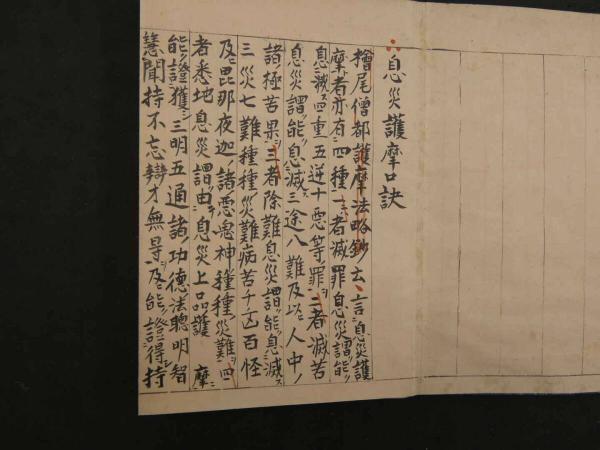 息災護摩口訣
檜尾僧都護摩法略鈔云言息災護
摩者亦有四種一者滅罪息災謂能
息滅四重五逆十悪等罪二者滅苦
息災謂能息滅三途八難及以人中
諸極苦果三者除難息災謂能息滅
三災七難種種災難病苦千凶百怪
及毘那夜迦諸悪鬼神種種災難四
者悉地息災謂由息災上品護摩
能證獲三明五通諸功德法聰明智
慧聞持不忘辯才無㝵及能證得持